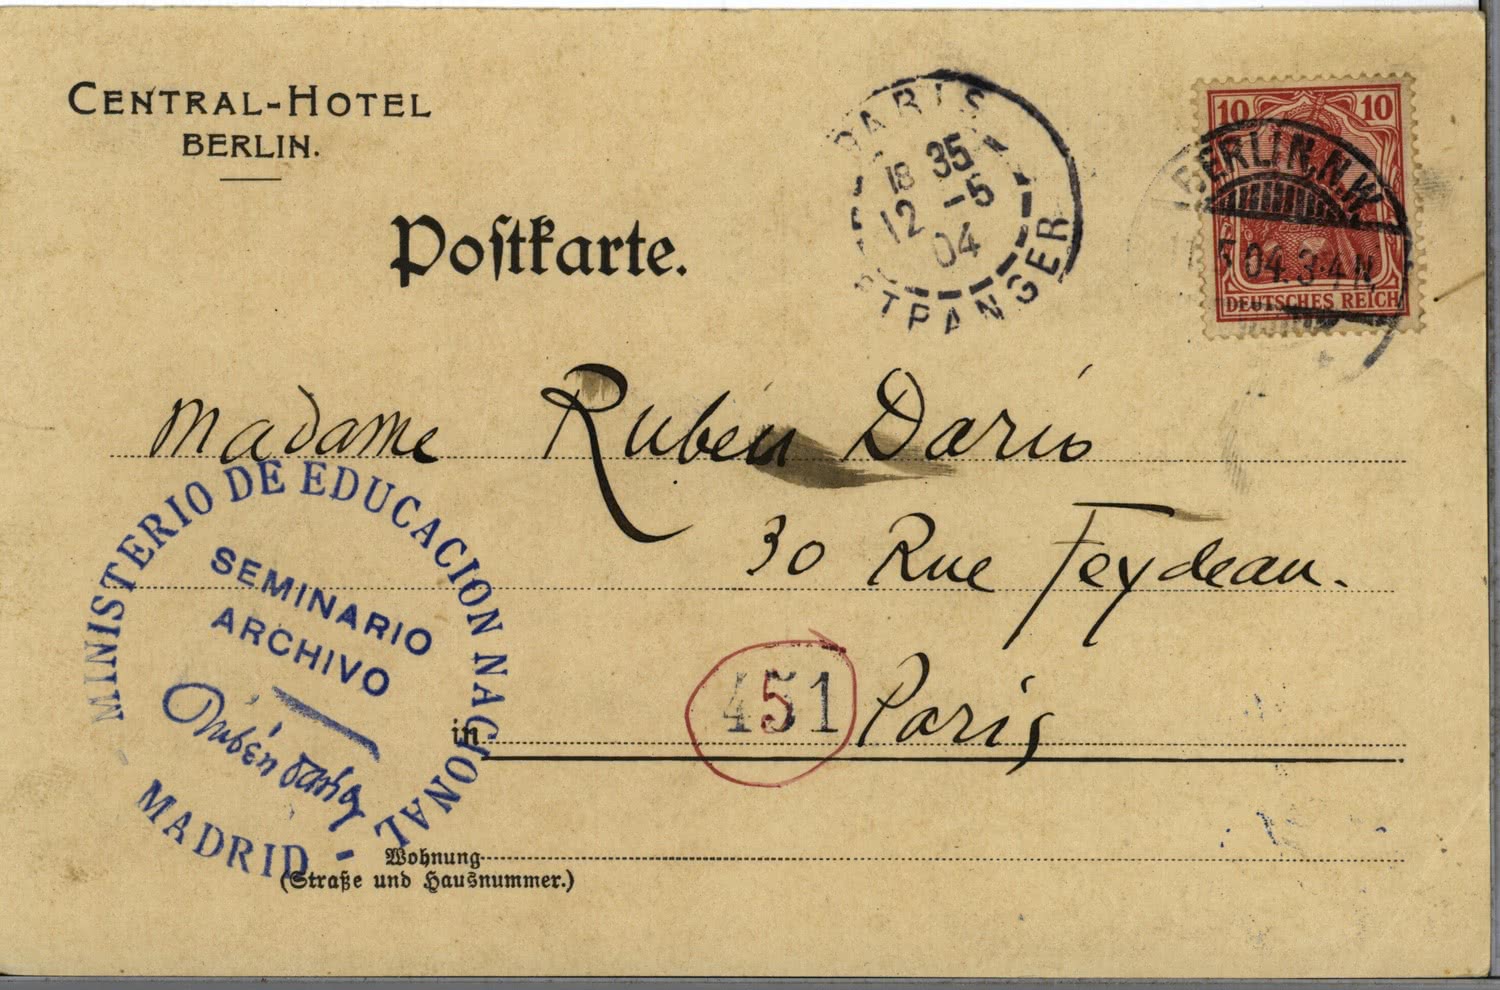 CENTRAL-HOTEL
BERLIN.
Poſtkarte.
PARIS
18 35
12 -5
04
ETRANGER
10 10
BERLIN.N.W.
5 04. 3-4 N.
DEUTSCHES REICH
Madame Rubén Darío
30 Rue Feydeau.
in Paris
451
MINISTERIO DE EDUCACION NACIONAL - MADRID
SEMINARIO
ARCHIVO
Rubén Darío
Wohnung
(Straße und Hausnummer.)